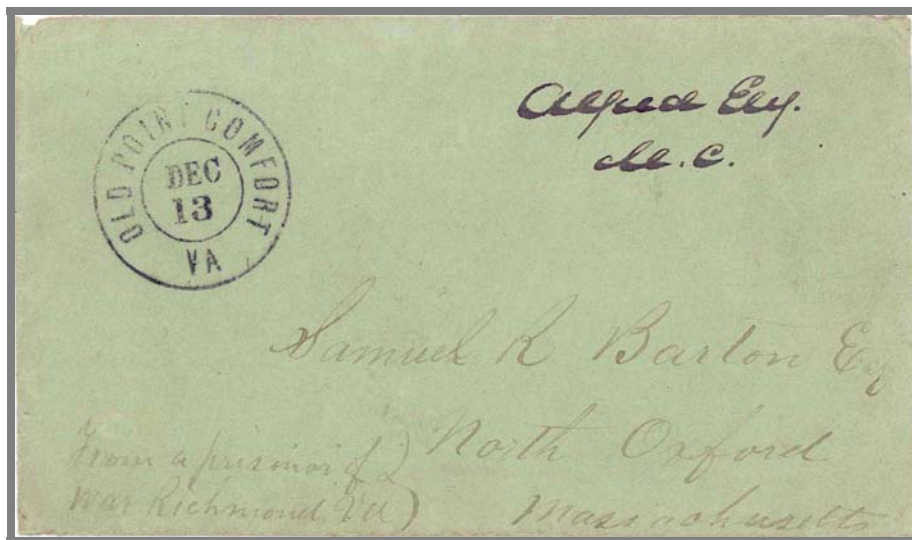 OLD POINT COMFORT
DEC
13
VA
Alfred Ely.
M. C.
Samuel R Barton Esq
North Oxford
Massachusetts
From a prisinor of
War Richmond Va